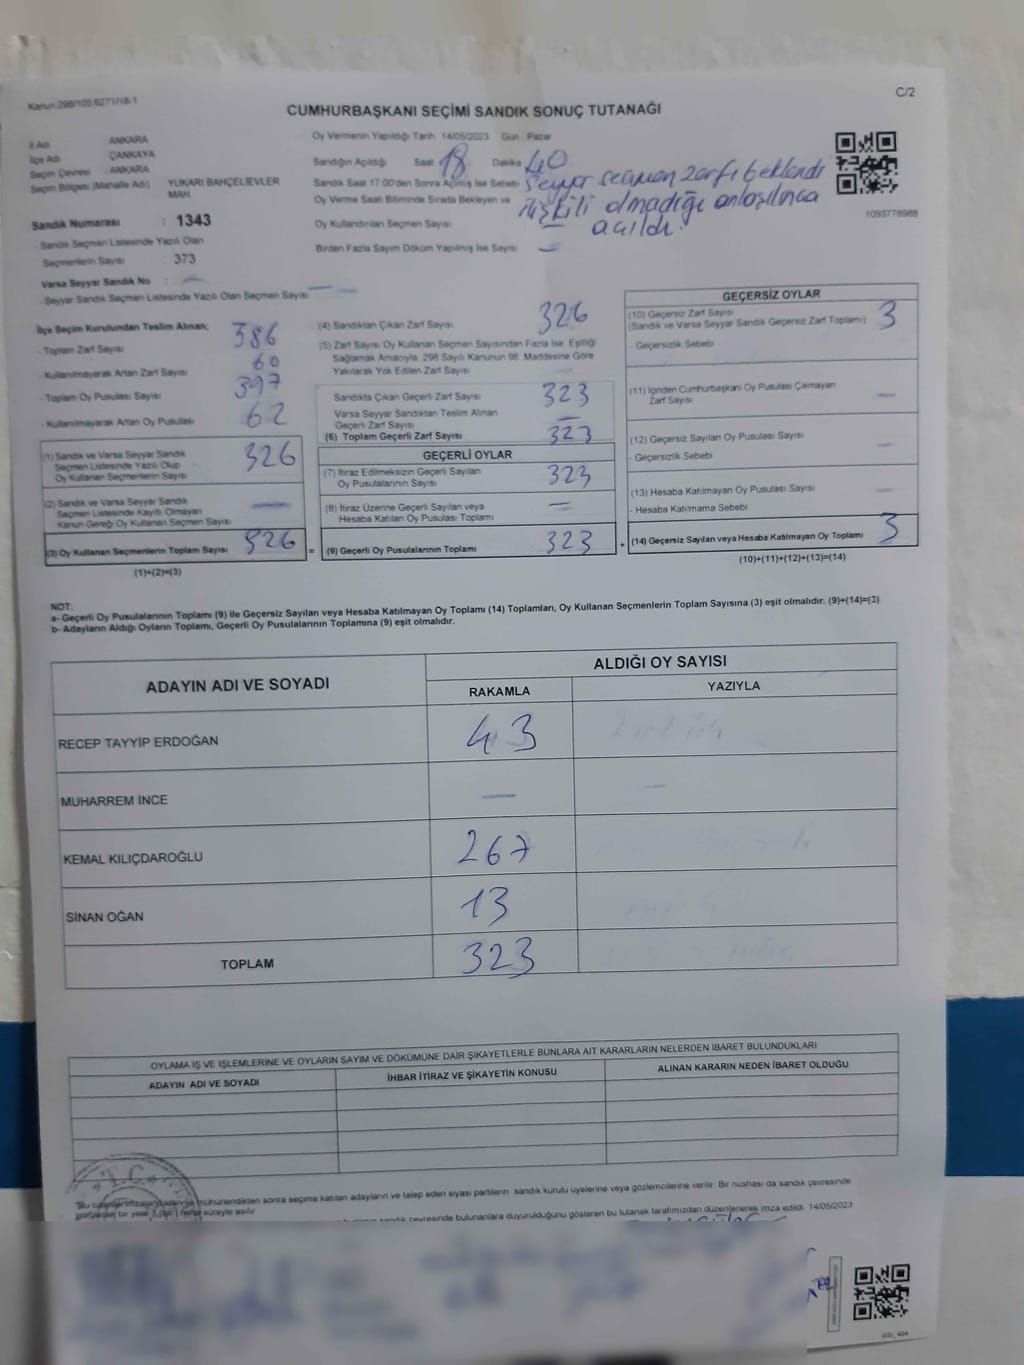 Kanun:298/105.6271/18-1
C/2
CUMHURBAŞKANI SEÇİMİ SANDIK SONUÇ TUTANAĞI
İl Adı ANKARA
İlçe Adı ÇANKAYA
Seçim Çevresi : ANKARA
Seçim Bölgesi (Mahalle Adı) YUKARI BAHÇELİEVLER MAH
Sandık Numarası : 1343
Sandık Seçmen Listesinde Yazılı Olan
Seçmenlerin Sayısı : 373
Varsa Seyyar Sandık No : —
Seyyar Sandık Seçmen Listesinde Yazılı Olan Seçmen Sayısı —
Oy Vermenin Yapıldığı Tarih 14/05/2023 Gün : Pazar
Sandığın Açıldığı Saat 18 Dakika 40
Sandık Saat 17:00'den Sonra Açılmış İse Sebebi Seyyar seçmen zarfı beklendi
Oy Verme Saati Bitiminde Sırada Bekleyen ve ilişkili olmadığı anlaşılınca
Oy Kullandırılan Seçmen Sayısı — açıldı.
Birden Fazla Sayım Döküm Yapılmış İse Sayısı —
1093778988
İlçe Seçim Kurulundan Teslim Alınan;
- Toplam Zarf Sayısı 386
- Kullanılmayarak Artan Zarf Sayısı 60
- Toplam Oy Pusulası Sayısı 397
- Kullanılmayarak Artan Oy Pusulası 62
(1) Sandık ve Varsa Seyyar Sandık
Seçmen Listesinde Yazılı Olup
Oy Kullanan Seçmenlerin Sayısı 326
(2) Sandık ve Varsa Seyyar Sandık
Seçmen Listesinde Kayıtlı Olmayan
Kanun Gereği Oy Kullanan Seçmen Sayısı —
(3) Oy Kullanan Seçmenlerin Toplam Sayısı 326
(1)+(2)=(3)
(4) Sandıktan Çıkan Zarf Sayısı 326
(5) Zarf Sayısı Oy Kullanan Seçmen Sayısından Fazla İse, Eşitliği
Sağlamak Amacıyla, 298 Sayılı Kanunun 98. Maddesine Göre
Yakılarak Yok Edilen Zarf Sayısı
Sandıkta Çıkan Geçerli Zarf Sayısı 323
Varsa Seyyar Sandıktan Teslim Alınan
Geçerli Zarf Sayısı —
(6) Toplam Geçerli Zarf Sayısı 323
GEÇERLİ OYLAR
(7) İtiraz Edilmeksizin Geçerli Sayılan
Oy Pusulalarının Sayısı 323
(8) İtiraz Üzerine Geçerli Sayılan veya
Hesaba Katılan Oy Pusulası Toplamı —
= (9) Geçerli Oy Pusulalarının Toplamı 323
GEÇERSİZ OYLAR
(10) Geçersiz Zarf Sayısı
(Sandık ve Varsa Seyyar Sandık Geçersiz Zarf Toplamı) 3
- Geçersizlik Sebebi
(11) İçinden Cumhurbaşkanı Oy Pusulası Çıkmayan
Zarf Sayısı —
(12) Geçersiz Sayılan Oy Pusulası Sayısı —
- Geçersizlik Sebebi
(13) Hesaba Katılmayan Oy Pusulası Sayısı —
- Hesaba Katılmama Sebebi
+ (14) Geçersiz Sayılan veya Hesaba Katılmayan Oy Toplamı 3
(10)+(11)+(12)+(13)=(14)
NOT:
a- Geçerli Oy Pusulalarının Toplamı (9) ile Geçersiz Sayılan veya Hesaba Katılmayan Oy Toplamı (14) Toplamları, Oy Kullanan Seçmenlerin Toplam Sayısına (3) eşit olmalıdır. (9)+(14)=(3)
b- Adayların Aldığı Oyların Toplamı, Geçerli Oy Pusulalarının Toplamına (9) eşit olmalıdır.
ADAYIN ADI VE SOYADI
ALDIĞI OY SAYISI
RAKAMLA YAZIYLA
RECEP TAYYİP ERDOĞAN 43
MUHARREM İNCE — —
KEMAL KILIÇDAROĞLU 267
SİNAN OĞAN 13
TOPLAM 323
OYLAMA İŞ VE İŞLEMLERİNE VE OYLARIN SAYIM VE DÖKÜMÜNE DAİR ŞİKAYETLERLE BUNLARA AİT KARARLARIN NELERDEN İBARET BULUNDUKLARI
ADAYIN ADI VE SOYADI İHBAR İTİRAZ VE ŞİKAYETİN KONUSU ALINAN KARARIN NEDEN İBARET OLDUĞU
T.C.
mühürlendikten sonra seçime katılan adayların ve talep eden siyasi partilerin sandık kurulu üyelerine veya gözlemcilerine verilir. Bir nüshası da sandık çevresinde
süreyle asılır
sandık çevresinde bulunanlara duyurulduğunu gösteren bu tutanak tarafımızdan düzenlenerek imza edildi. 14/05/2023